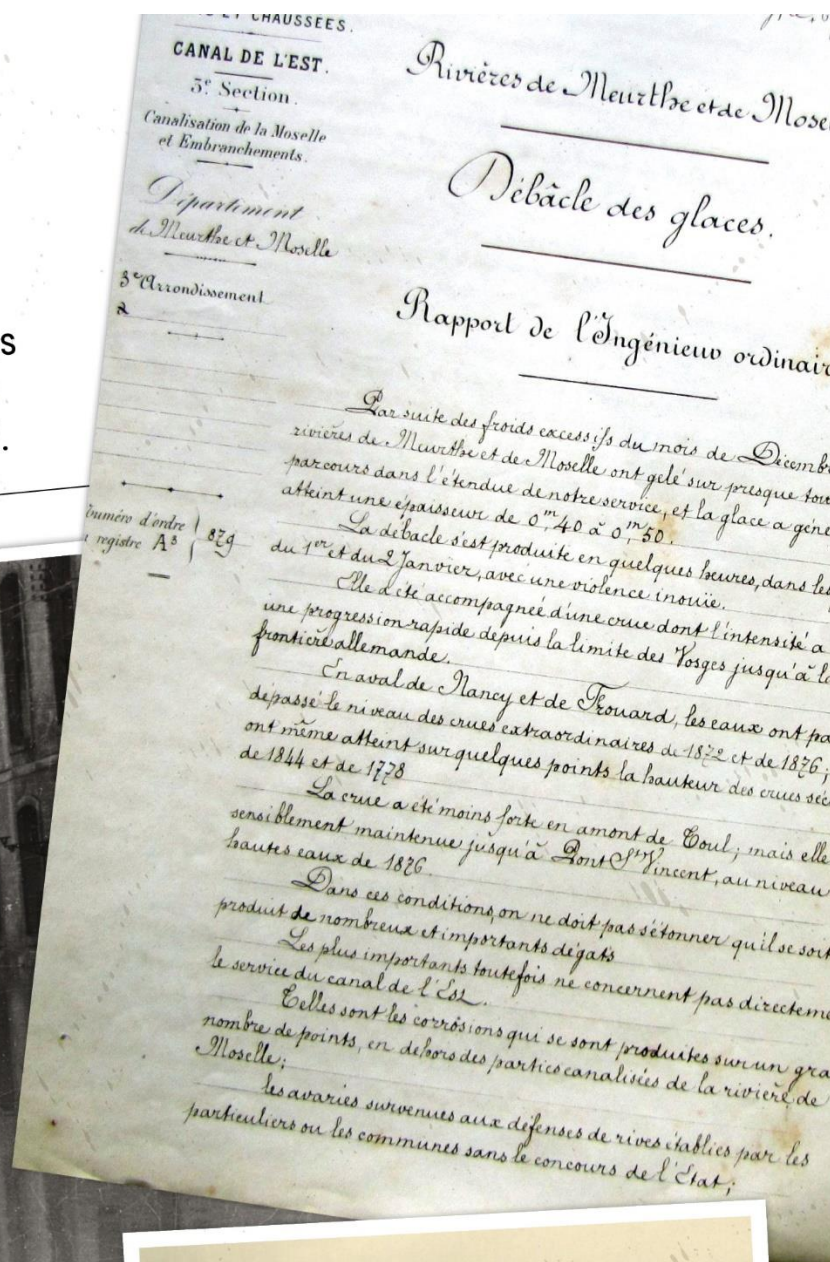 CHAUSSÉES.
CANAL DE L'EST.
3e Section.
Canalisation de la Moselle
et Embranchements.
Département
de Meurthe et Moselle
3e Arrondissement
Numéro d'ordre
registre A3
879
S
.
Rivières de Meurthe et de Mosel
Débâcle des glaces.
Rapport de l'Ingénieur ordinair
Par suite des froids excessifs du mois de Décembr
rivières de Meurthe et de Moselle ont gelé sur presque tou
parcours dans l'étendue de notre service, et la glace a géné
atteint une épaisseur de 0m,40 à 0m,50.
La débacle s'est produite en quelques heures, dans les
du 1er et du 2 Janvier, avec une violence inouïe.
Elle a été accompagnée d'une crue dont l'intensité a
une progression rapide depuis la limite des Vosges jusqu'à la
frontière allemande.
En aval de Nancy et de Frouard, les eaux ont pa
dépassé le niveau des crues extraordinaires de 1872 et de 1876;
ont même atteint sur quelques points la hauteur des crues séc
de 1844 et de 1778
La crue a été moins forte en amont de Toul; mais elle
sensiblement maintenue jusqu'à Pont St Vincent, au niveau
hautes eaux de 1876.
Dans ces conditions, on ne doit pas s'étonner qu'il se soit
produit de nombreux et importants dégats
Les plus importants toutefois ne concernent pas directeme
le service du canal de l'Est.
Telles sont les corrosions qui se sont produites sur un gra
nombre de points, en dehors des parties canalisées de la rivière de
Moselle;
les avaries survenues aux défenses de rives établies par les
particuliers ou les communes sans le concours de l'État;